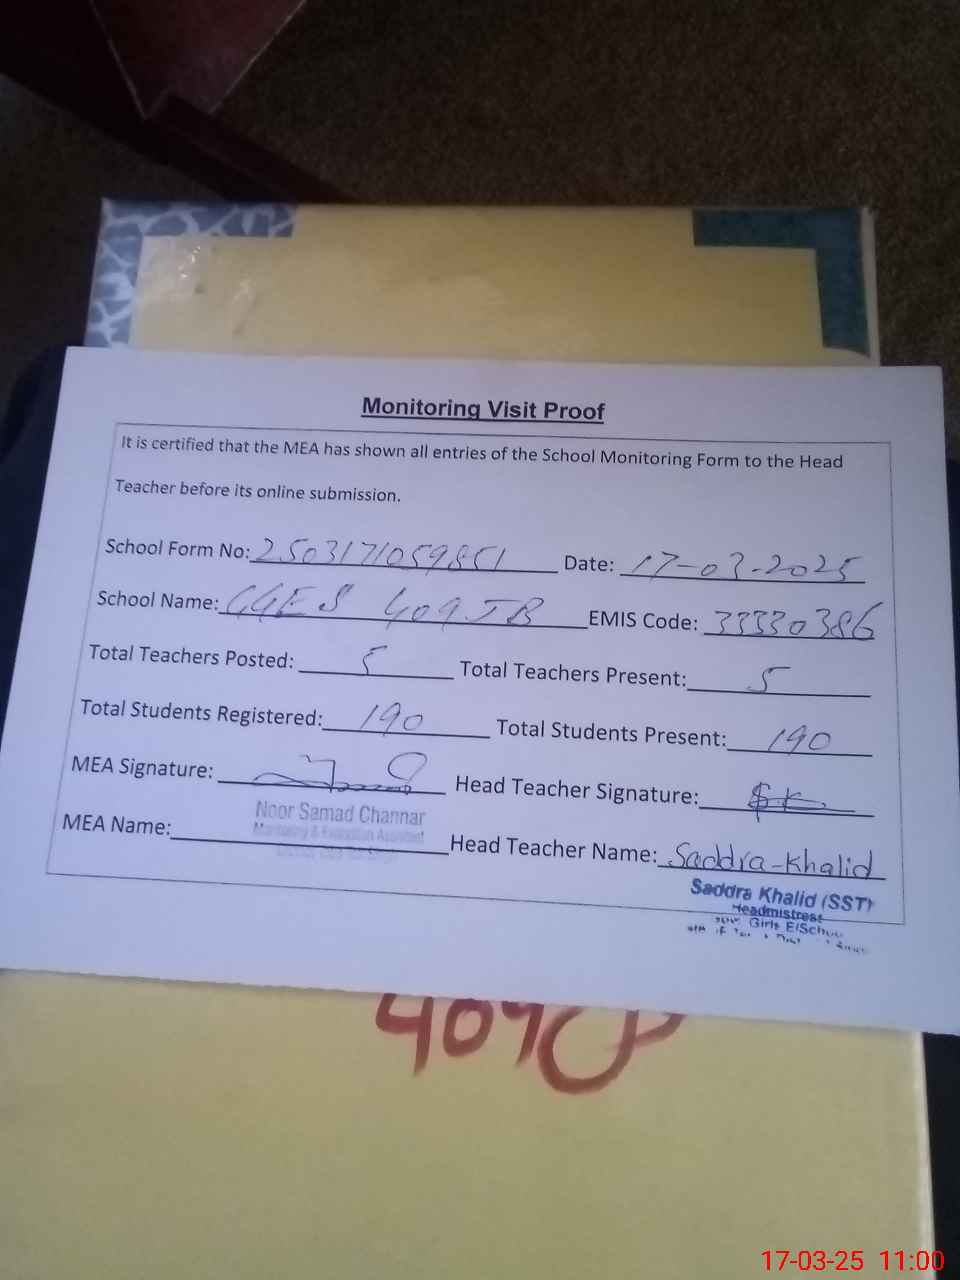 Monitoring Visit Proof
It is certified that the MEA has shown all entries of the School Monitoring Form to the Head
Teacher before its online submission.
School Form No: 2503171059851 Date: 17-03-2025
School Name: GGES 409 JB EMIS Code: 33330386
Total Teachers Posted: 5 Total Teachers Present: 5
Total Students Registered: 190 Total Students Present: 190
MEA Signature: Head Teacher Signature: SK
Noor Samad Channar
Monitoring & Evaluation Assistant
MEA Name: Head Teacher Name: Saddra-Khalid
Saddra Khalid (SST)
Headmistress
Girls E/School
409
17-03-25 11:00